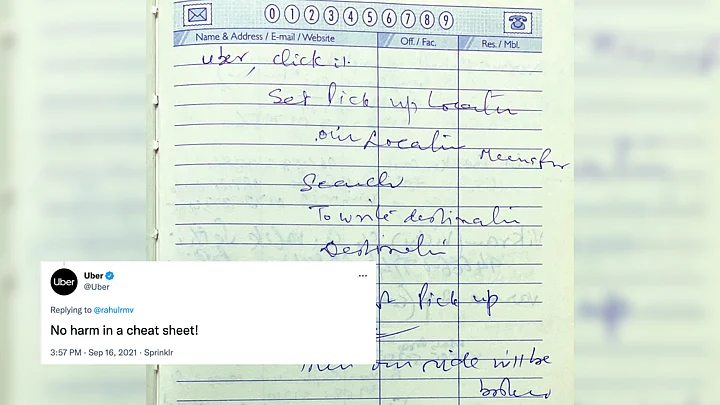 0 1 2 3 4 5 6 7 8 9
Name & Address / E-mail / Website Off. / Fac. Res. / Mbl.
Uber, click it.
Set Pick up Locatin
our Locatin
Search
To write destinatin
Destinatin
Pick up
our ride will be
Uber
Uber
@Uber
Replying to @rahulrmv
No harm in a cheat sheet!
3:57 PM - Sep 16, 2021 - Sprinklr